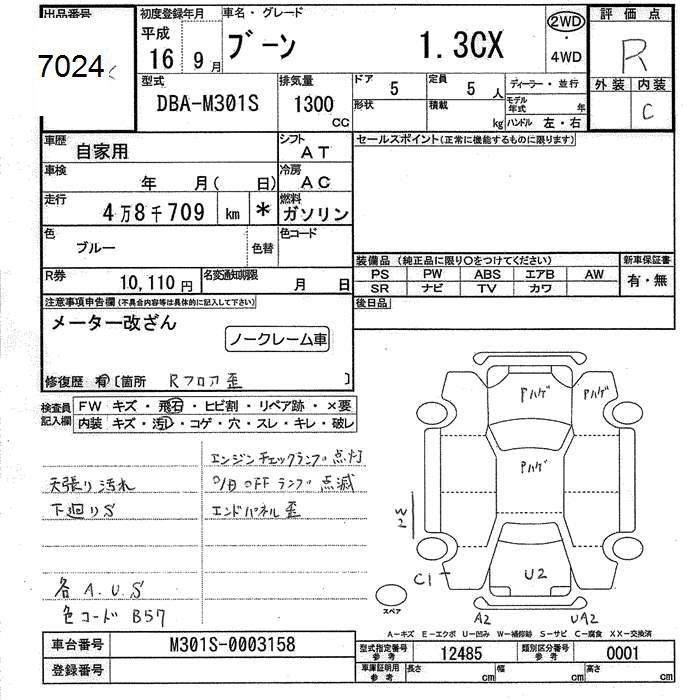 出品番号
7024
初度登録年月
平成
16 年 9 月
車名・グレード
ブーン 1.3CX
2WD
・
4WD
評価点
R
外装 内装
C
型式
DBA-M301S
排気量
1300
CC
ドア
5
定員
5 人
ディーラー・並行
形状
積載
kg
モデル年式 年
ハンドル 左・右
車歴
自家用
シフト
AT
セールスポイント(正常に機能するものに限ります)
車検
年 月( 日)
冷房
AC
走行
4万8千709 km *
燃料
ガソリン
色
ブルー
色替
色コード
R券
10,110 円
名変通知期限
月 日
装備品 (純正品に限り○をつけてください)
PS PW ABS エアB AW
SR ナビ TV カワ
新車保証書
有・無
後日品
注意事項申告欄(不具合内容等は具体的に記入して下さい)
メーター改ざん
ノークレーム車
修復歴 有 [箇所 Rフロア歪 ]
検査員記入欄
FW キズ・飛石・ヒビ割・リペア跡・×要
内装 キズ・汚レ・コゲ・穴・スレ・キレ・破レ
エンジンチェックランプ点灯
天張り汚れ
O/D OFFランプ点滅
下廻りS
エンドパネル歪
各A.U.S
色コード B57
Pハゲ
Pハゲ
Pハゲ
W2
C1
U2
A2
UA2
スペア
A-キズ E-エクボ U-凹み W-補修跡 S-サビ C-腐食 XX-交換済
車台番号
M301S-0003158
登録番号
型式指定番号
参考
12485
類別区分番号
参考
0001
車庫証明用
参考
長さ cm
幅 cm
高さ cm